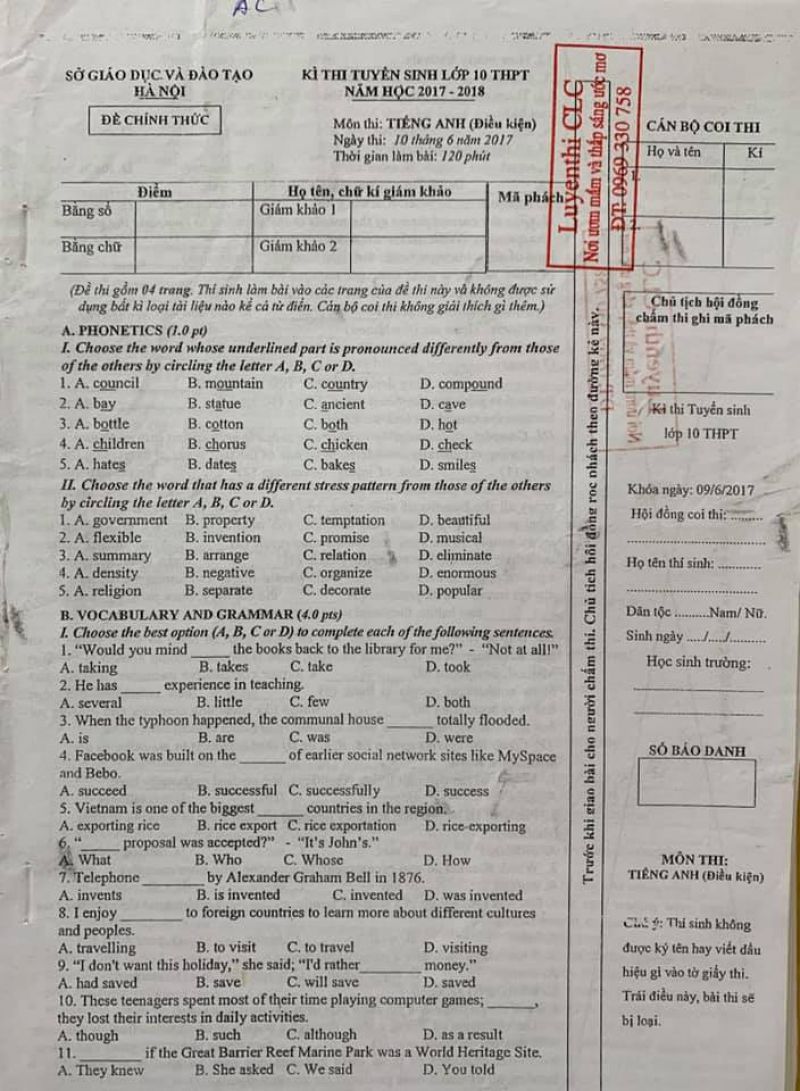 AC
SỞ GIÁO DỤC VÀ ĐÀO TẠO
HÀ NỘI
ĐỀ CHÍNH THỨC
KÌ THI TUYỂN SINH LỚP 10 THPT
NĂM HỌC 2017 - 2018
Môn thi: TIẾNG ANH (Điều kiện)
Ngày thi: 10 tháng 6 năm 2017
Thời gian làm bài: 120 phút
Luyenthi CLC
Nơi ươm mầm và thắp sáng ước mơ
ĐT: 0969 330 758
Điểm
Họ tên, chữ kí giám khảo
Mã phách
Bằng số
Giám khảo 1
Bằng chữ
Giám khảo 2
(Đề thi gồm 04 trang. Thí sinh làm bài vào các trang của đề thi này và không được sử
dụng bất kì loại tài liệu nào kể cả từ điển. Cán bộ coi thi không giải thích gì thêm.)
A. PHONETICS (1.0 pt)
I. Choose the word whose underlined part is pronounced differently from those
of the others by circling the letter A, B, C or D.
1. A. council B. mountain C. country D. compound
2. A. bay B. statue C. ancient D. cave
3. A. bottle B. cotton C. both D. hot
4. A. children B. chorus C. chicken D. check
5. A. hates B. dates C. bakes D. smiles
II. Choose the word that has a different stress pattern from those of the others
by circling the letter A, B, C or D.
1. A. government B. property C. temptation D. beautiful
2. A. flexible B. invention C. promise D. musical
3. A. summary B. arrange C. relation D. eliminate
4. A. density B. negative C. organize D. enormous
5. A. religion B. separate C. decorate D. popular
B. VOCABULARY AND GRAMMAR (4.0 pts)
I. Choose the best option (A, B, C or D) to complete each of the following sentences.
1. “Would you mind _____ the books back to the library for me?” - “Not at all!”
A. taking B. takes C. take D. took
2. He has _____ experience in teaching.
A. several B. little C. few D. both
3. When the typhoon happened, the communal house ______ totally flooded.
A. is B. are C. was D. were
4. Facebook was built on the ______ of earlier social network sites like MySpace
and Bebo.
A. succeed B. successful C. successfully D. success
5. Vietnam is one of the biggest ______ countries in the region.
A. exporting rice B. rice export C. rice exportation D. rice-exporting
6. “_____ proposal was accepted?” - “It's John's.”
A. What B. Who C. Whose D. How
7. Telephone ________ by Alexander Graham Bell in 1876.
A. invents B. is invented C. invented D. was invented
8. I enjoy ________ to foreign countries to learn more about different cultures
and peoples.
A. travelling B. to visit C. to travel D. visiting
9. “I don't want this holiday,” she said; “I'd rather________ money.”
A. had saved B. save C. will save D. saved
10. These teenagers spent most of their time playing computer games; ______,
they lost their interests in daily activities.
A. though B. such C. although D. as a result
11. ________ if the Great Barrier Reef Marine Park was a World Heritage Site.
A. They knew B. She asked C. We said D. You told
Trước khi giao bài cho người chấm thi. Chủ tịch hội đồng rọc phách theo đường kẻ này.
CÁN BỘ COI THI
Họ và tên Kí
1.
2.
Chủ tịch hội đồng
chấm thi ghi mã phách
Kì thi Tuyển sinh
lớp 10 THPT
Khóa ngày: 09/6/2017
Hội đồng coi thi: ........
Họ tên thí sinh: ............
Dân tộc .........Nam/ Nữ.
Sinh ngày ..../..../..........
Học sinh trường:
SỐ BÁO DANH
MÔN THI:
TIẾNG ANH (Điều kiện)
Chú ý: Thí sinh không
được ký tên hay viết dấu
hiệu gì vào tờ giấy thi.
Trái điều này, bài thi sẽ
bị loại.